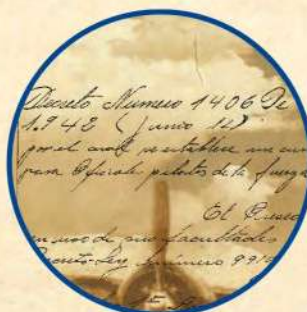 Decreto Numero 1406 De
1.942 (Junio 12)
por el cual se establece un
para Oficiales pilotos de la fuerza
El
en uso de sus facultades
Decreto-Ley número